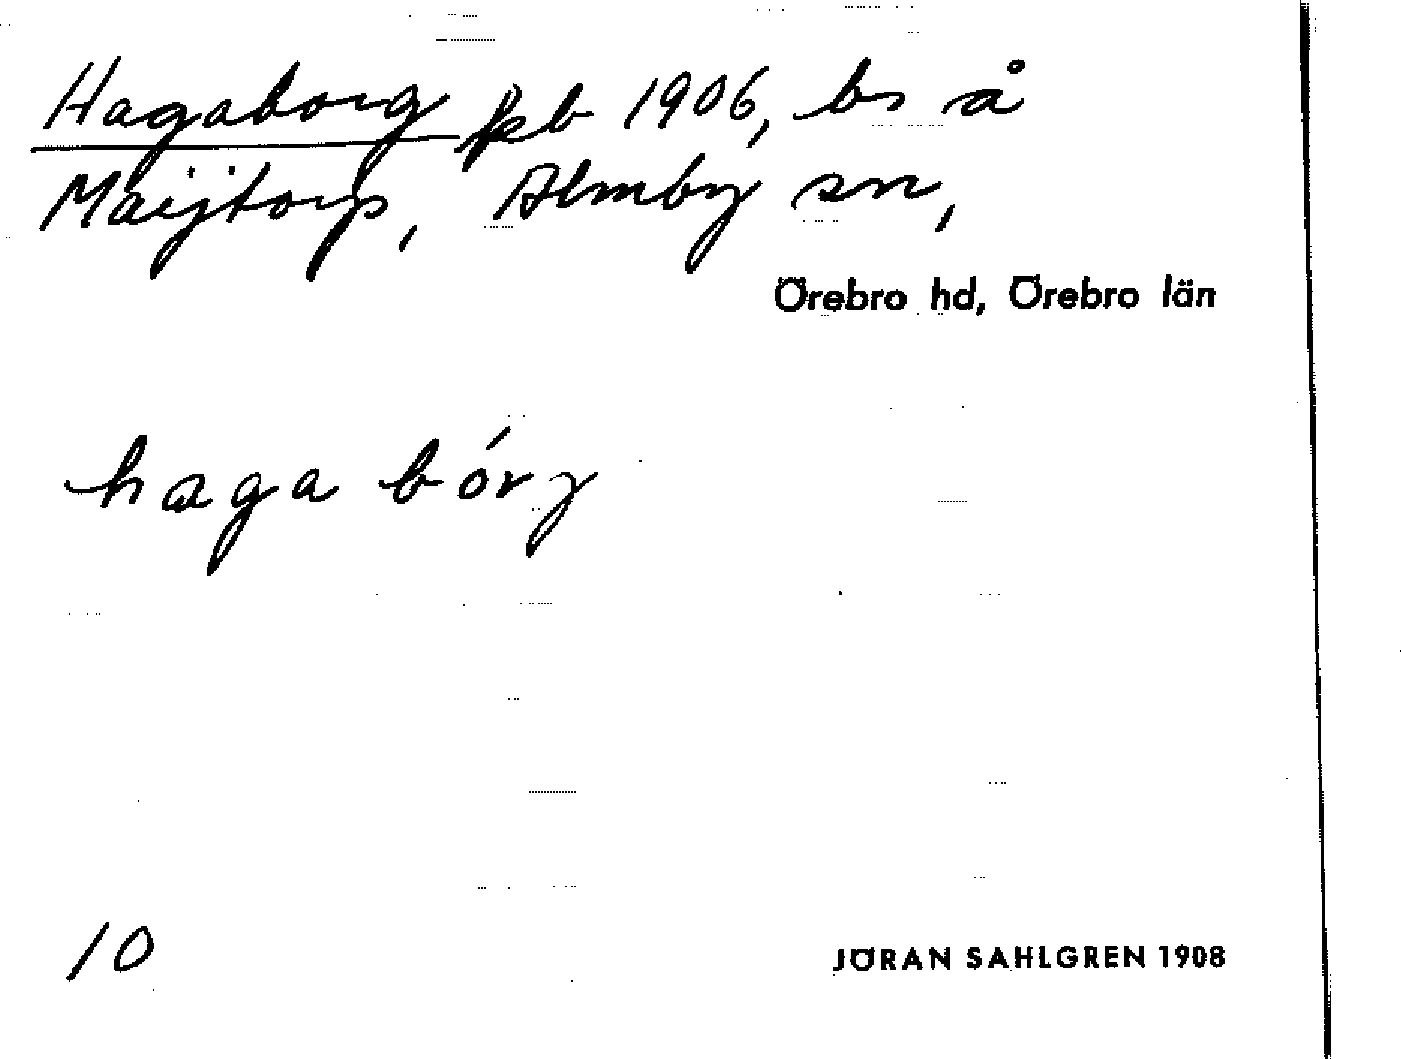 Hagaborg kb 1906, bs å
Maijtorp, Almby sn,
Örebro hd, Örebro län
haga bórj
10
JÖRAN SAHLGREN 1908